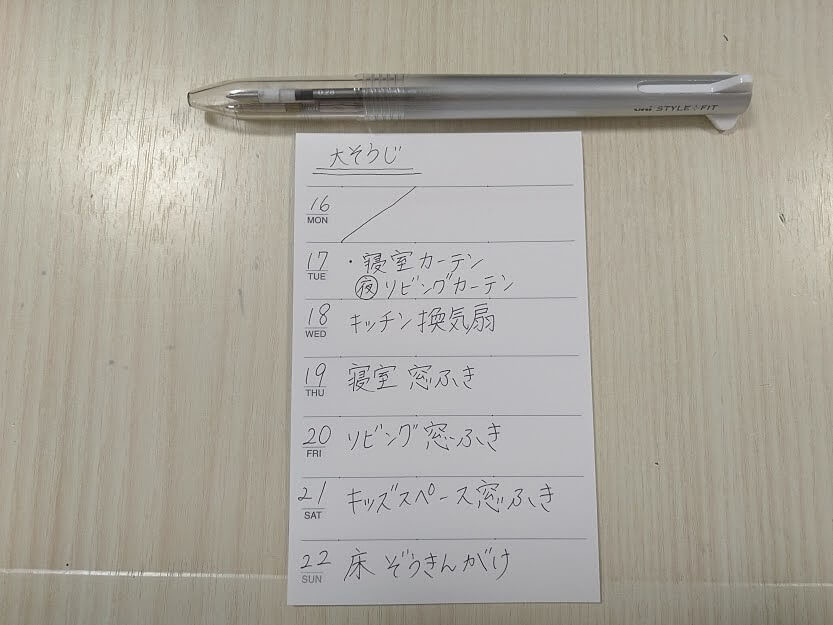 0.28
uni STYLE FIT
大そうじ
16
MON
17
TUE
・寝室カーテン
夜 リビングカーテン
18
WED
キッチン換気扇
19
THU
寝室 窓ふき
20
FRI
リビング窓ふき
21
SAT
キッズスペース窓ふき
22
SUN
床 ぞうきんがけ